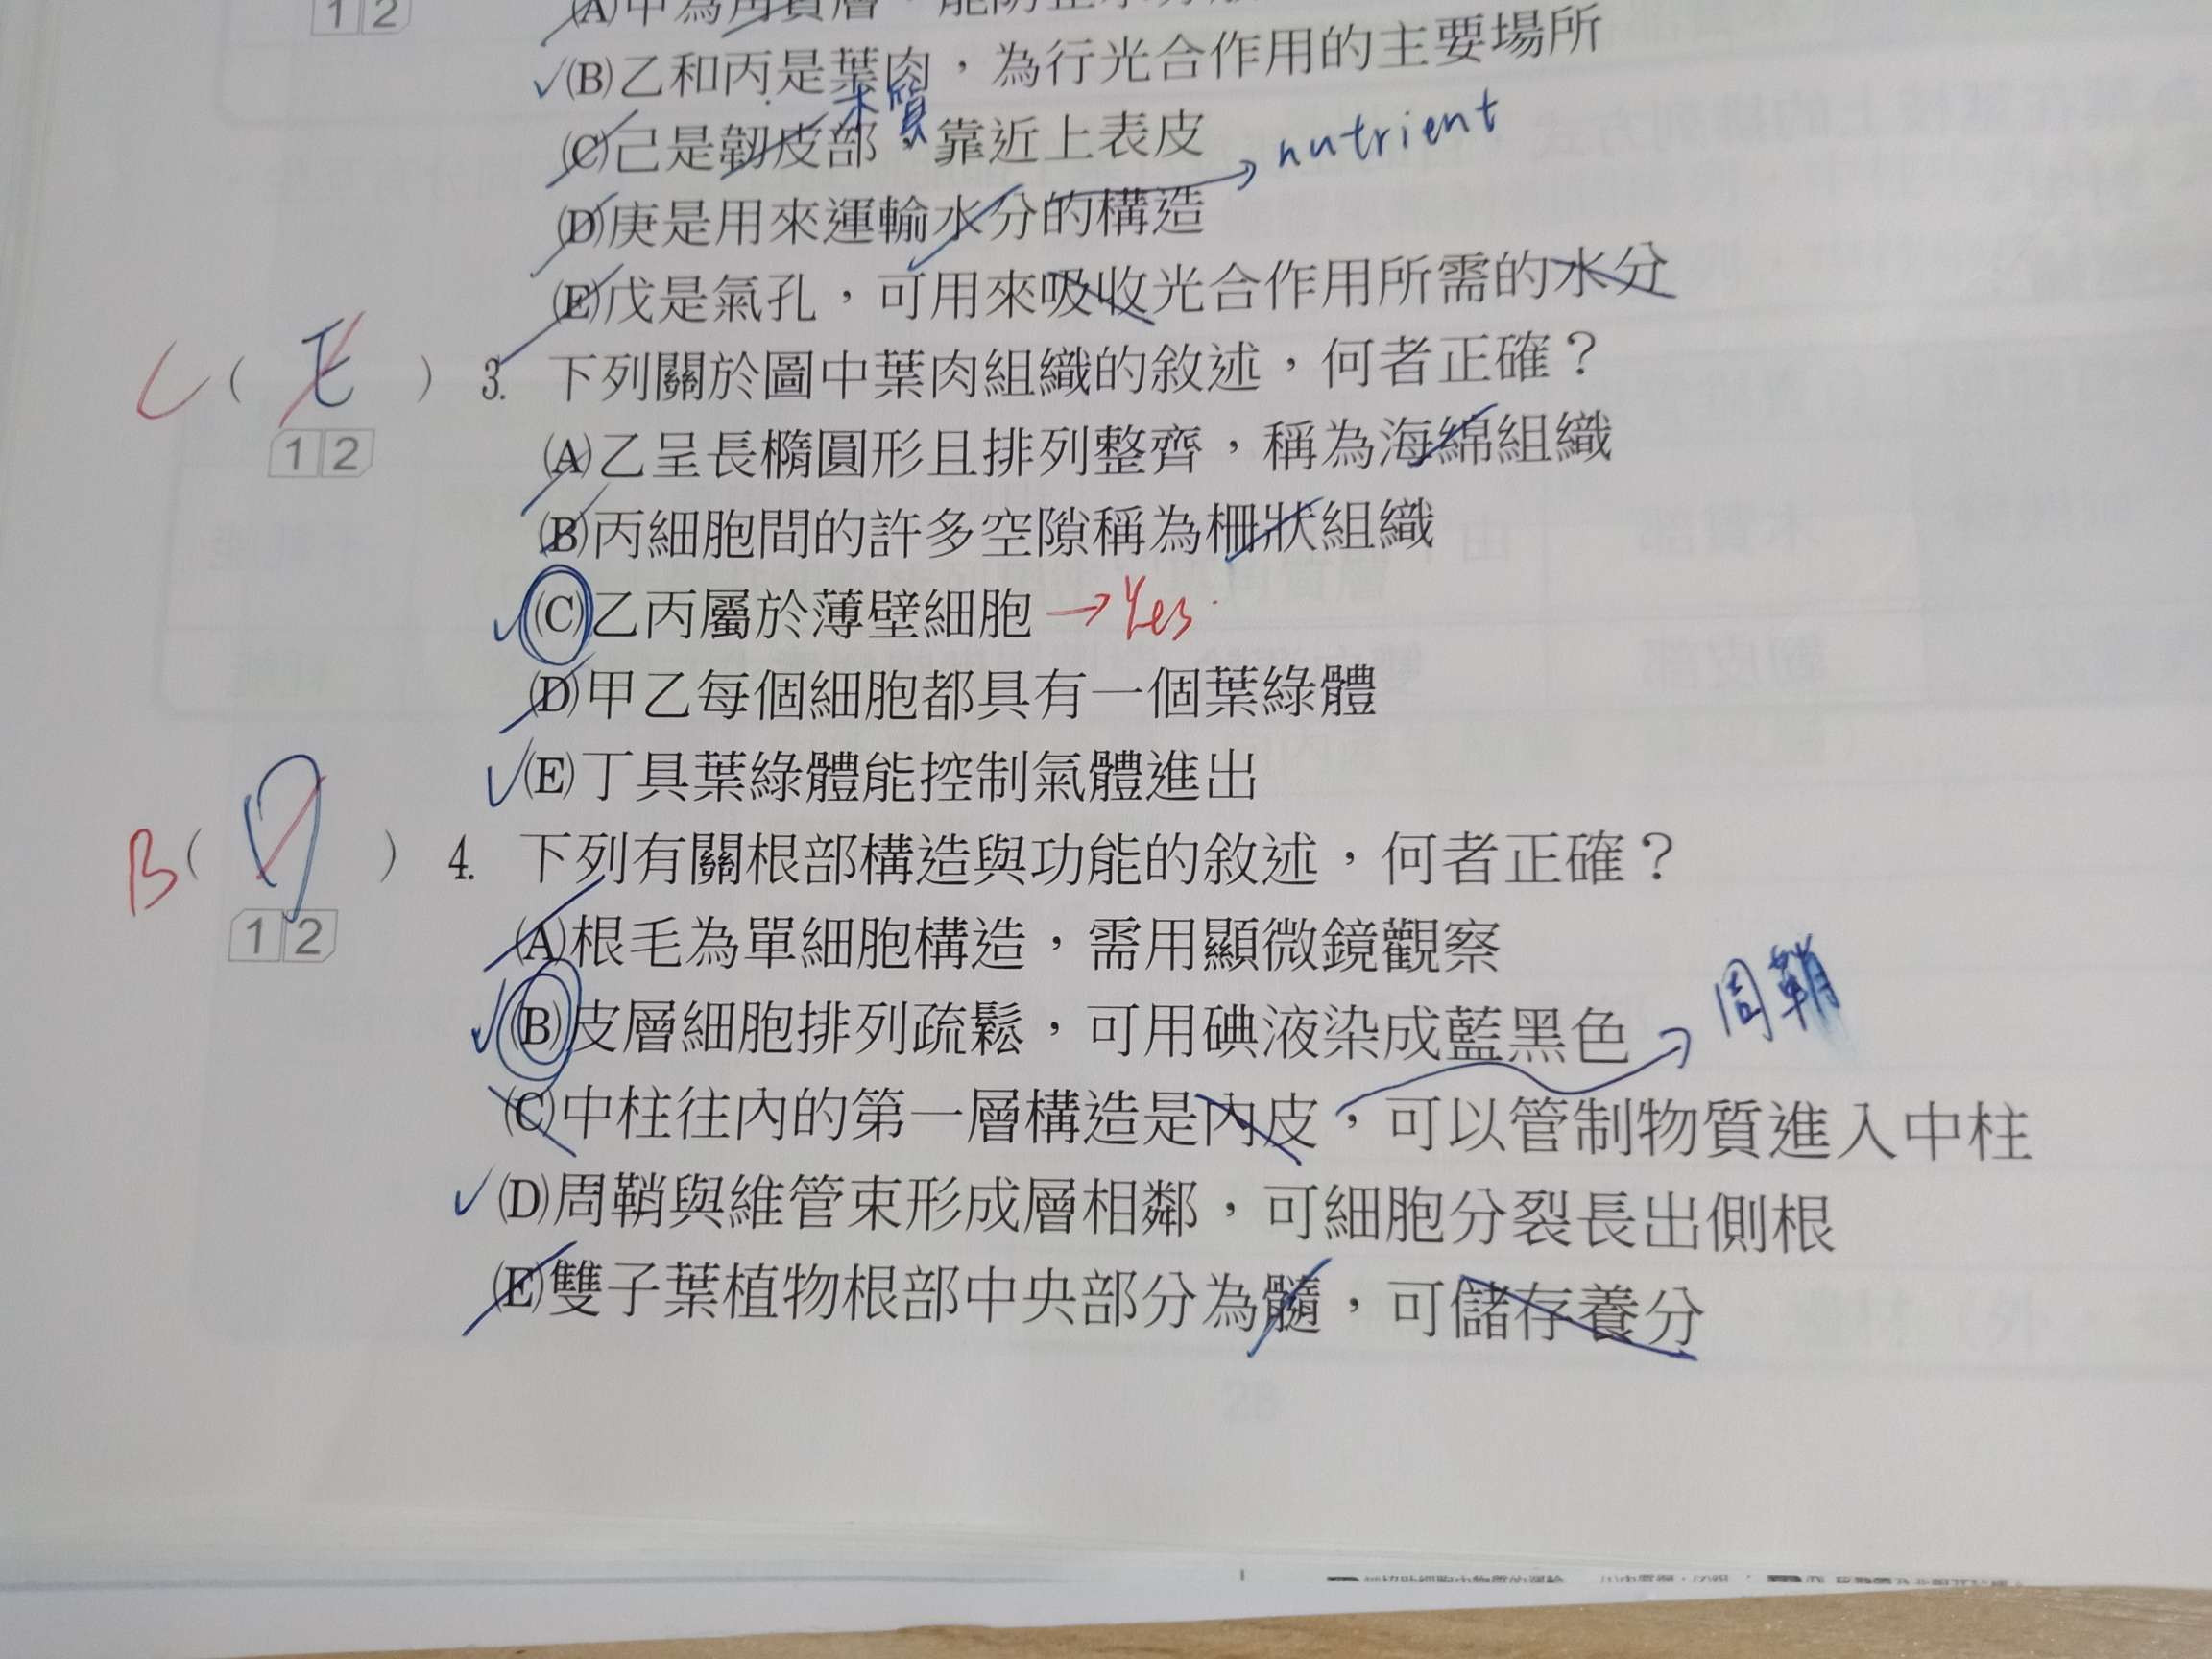 1 2
(A)甲為角質層,能防止水分散
(B)乙和丙是葉肉,為行光合作用的主要場所
木質
(C)己是韌皮部,靠近上表皮
nutrient
(D)庚是用來運輸水分的構造
(E)戊是氣孔,可用來吸收光合作用所需的水分
C ( E ) 3. 下列關於圖中葉肉組織的敘述,何者正確?
1 2
(A)乙呈長橢圓形且排列整齊,稱為海綿組織
(B)丙細胞間的許多空隙稱為柵狀組織
(C)乙丙屬於薄壁細胞 →Yes
(D)甲乙每個細胞都具有一個葉綠體
(E)丁具葉綠體能控制氣體進出
B ( D ) 4. 下列有關根部構造與功能的敘述,何者正確?
1 2
(A)根毛為單細胞構造,需用顯微鏡觀察
(B)皮層細胞排列疏鬆,可用碘液染成藍黑色
周鞘
(C)中柱往內的第一層構造是內皮,可以管制物質進入中柱
(D)周鞘與維管束形成層相鄰,可細胞分裂長出側根
(E)雙子葉植物根部中央部分為髓,可儲存養分